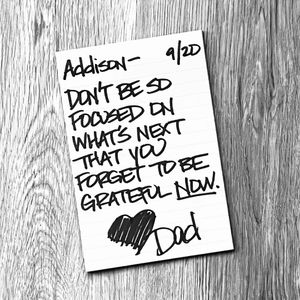 Addison- 9/20
DON'T BE SO
FOCUSED ON
WHAT'S NEXT
THAT YOU
FORGET TO BE
GRATEFUL NOW.
Dad